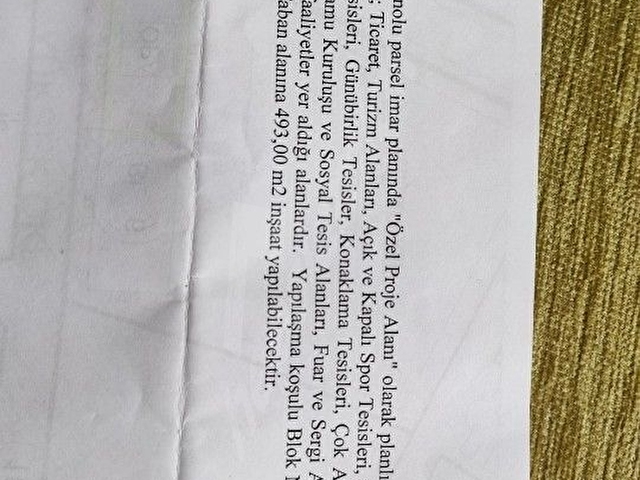 nolu parsel imar planında "Özel Proje Alanı" olarak planlı
; Ticaret, Turizm Alanları, Açık ve Kapalı Spor Tesisleri,
sisleri, Günübirlik Tesisler, Konaklama Tesisleri, Çok A
amu Kuruluşu ve Sosyal Tesis Alanları, Fuar ve Sergi A
aaliyetler yer aldığı alanlardır. Yapılaşma koşulu Blok N
aban alanına 493,00 m2 inşaat yapılabilecektir.